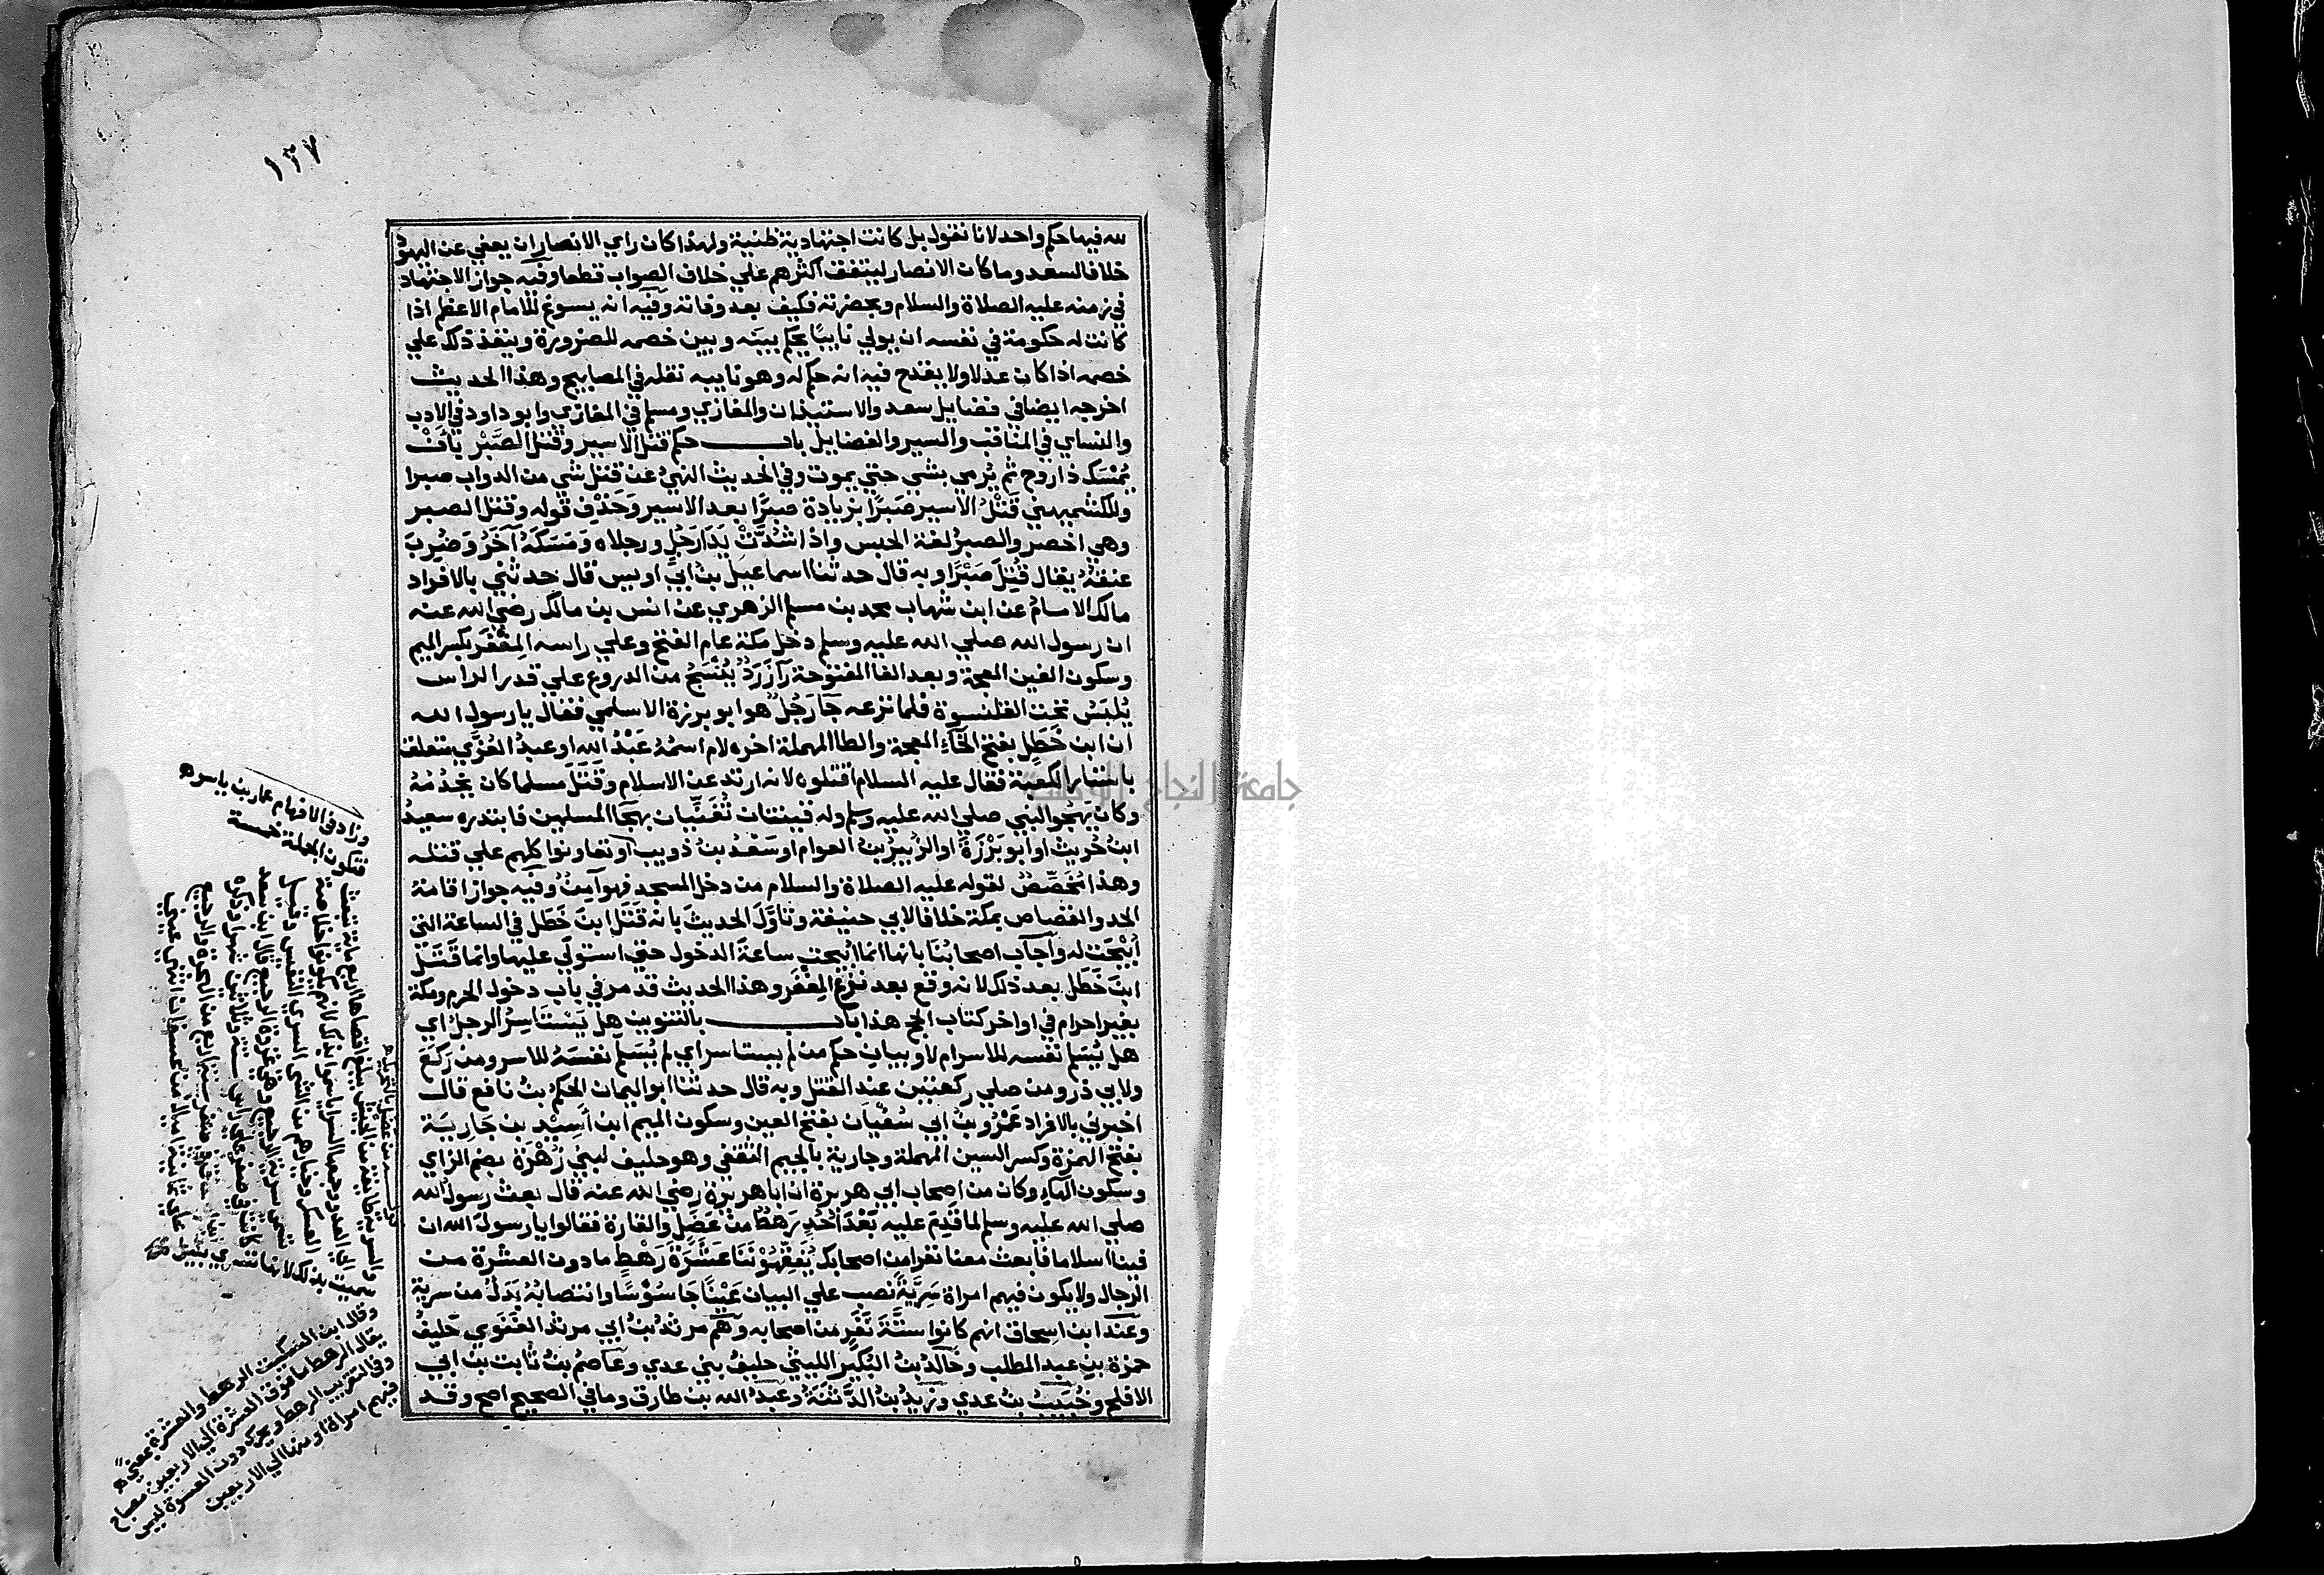 ١٣٧
لله فيها حكم واحد لانا نقول بل كانت اجتهادية ظنية ولهذا كان راي الانصار ان يعفي عن اليهود
خلافا لسعد وما كان الانصار ليتفق اكثرهم علي خلاف الصواب قطعا وفيه جواز الاجتهاد
في زمنه عليه الصلاة والسلام وبحضرته فكيف بعد وفاته وفيه انه يسوغ للامام الاعظم اذا
كانت له حكومة في نفسه ان يولي نايبًا يحكم بينه وبين خصمه للضرورة وينفذ ذلك علي
خصمه اذا كان عدلا ولا يقدح فيه انه حكم له وهو نايبه نقله في المصابيح وهذا الحديث
اخرجه ايضا في فضايل سعد والاستيذان والمغازي ومسلم في المغازي وابو داود في الادب
والنساي في المناقب والسير والفضايل باب حكم قتل الاسير وقتل الصَّبْر بأنْ
يُمْسَك ذا روح ثم يُرمي بشي حتي يموت وفي الحديث النهي عن قتل شي من الدواب صبرا
وللكشميهني قَتْلُ الاسير صَبرًا بزيادة صبرًا بعد الاسير وَحَذْف قوله وقتل الصبر
وهي اخصر والصبر لغة الحبس واذا شُدَّتْ يَدَا رَجُلٍ ورجلاه وَمَسَكَهُ آخَرُ وَضُرِبَ
عنقهُ يقال قُتِلَ صَبْرًا وبه قال حدثنا اسماعيل بن ابي اويس قال حدثني بالافراد
مالك الامام عن ابن شهاب محمد بن مسلم الزهري عن انس بن مالك رضي الله عنه
ان رسول الله صلي الله عليه وسلم دخل مكة عام الفتح وعلي راسه المِغْفَر بكسر الميم
وسكون الغين المعجمة وبعد الفا المفتوحة رآ زَرَدٌ يُنْسَجُ من الدروع علي قدر الراس
يُلبَسُ تحت القلنسوة فلما نزعه جآ رَجُلٌ هو ابو برزة الاسلمي فقال يا رسول الله
ان ابن خَطَلٍ بفتح الخآءِ المعجمة والطا المهملة اخره لام اسمُهُ عَبْدُ الله او عبدُ العُزّي متعلق
باستار الكعبة فقال عليه السلام اقتلوه لانه ارتد عن الاسلام وقَتَلَ مسلما كان يخدُمُهُ
وكان يَهجُو النبي صلي الله عليه وسلم وله قينتان تُغَنِّيان بهجآ المسلمين فابتدره سعيدُ
ابنُ حُريث او ابو بَرْزَةَ او الزُّبيرُ بنُ العوام او سَعْدُ بنُ ذويب او تعاونوا كلهم علي قتله
وهذا مُخَصِّصٌ لقوله عليه الصلاة والسلام من دخل المسجد فهو آمِنٌ وفيه جواز اقامة
الحد والقصاص بمكة خلافا لابي حنيفة وتاوَّلَ الحديثَ بانه قَتَلَ ابنَ خَطَلٍ في الساعة التي
اُبيحَت له واَجآبَ اصحابُنَا بانها انما اُبيحت ساعةَ الدخول حتي استولَي عليها وانما قَتَلَ
ابنَ خَطَل بعد ذلك لانه وقع بعد نزْع المِغْفَر وهذا الحديث قد مر في باب دخول الحرم ومكة
بغير احرام في اواخر كتاب الحج هذا باب بالتنوين هل يَسْتَاسِرُ الرجلُ اي
هل يُسَلم نفسه للاسر ام لا وبيان حكم من لم يستاسر اي لم يُسَلم نفسَهُ للاسر ومن رَكَعَ
ولابي ذر ومن صلي ركعتين عند القتل وبه قال حدثنا ابو اليمان الحكمُ بنُ نافع قال
اخبرني بالافراد عَمْرُو بنُ ابي سُفْيان بفتح العين وسكون الميم ابن اَسِيْد بن جَارِيَة
بفتح الهمزة وكسر السين المهملة وجارية بالجيم الثقفي وهو حليف لبني زُهْرَة بضم الزاي
وسكون الهاء وكان من اصحاب ابي هريرة ان ابا هريرة رضي الله عنه قال بعث رسول الله
صلي الله عليه وسلم لما قَدِمَ عليه بَعْدَ اُحُدٍ رَهطٌ من عَضَلٍ والقارة فقالوا يا رسول الله ان
فينا اسلاما فابعث معنا نفرا من اصحابك يُفَقِّهُوْنَنَا عَشَرَةَ رَهْطٍ مادون العشرة من
الرجال ولا يكون فيهم امراة سَرِيَّةً نصب علي البيان عَيْنًا جَاسُوْسًا وانتصابُهُ بَدَلٌ من سرية
وعند ابن اسحاق انهم كانوا ستَّةَ نَفَرٍ من اصحابه وهم مرثد بنُ ابي مرثد الغَنَوي حَليفُ
حمزة بن عبد المطلب وخالدُ بنُ البُكير الليثي حليفُ بني عدي وعَاصمُ بنُ ثابت بن ابي
الاقلح وخُبَيبُ بنُ عدي وزيدُ بنُ الدَّثِنَةُ وعَبدُ الله بن طارق وما في الصحيح اصح وقد
وزاد في الافهام عمار بن ياسر ه
فتكون الجملة خمسة
والسرية طايفة من الجيش يبلغ اقصاها اربع ماية تبعث
الي العدو وجمعها السرايا سموا بذلك لانهم يكونوا خلاصة
العسكر وخيارهم من الشي السري النفيس وقيل
سميت بذلك لانها تسري بليل
وقال ابن السكيت الرهط والعشرة بمعني ه
يقال الرهط ما فوق العشرة الي الاربعين مصباح
وفي التقريب الرهط ويحرك دون العشرة ليس
فيهم امراة او منها الي الاربعين
جامعة النجاح الوطنية